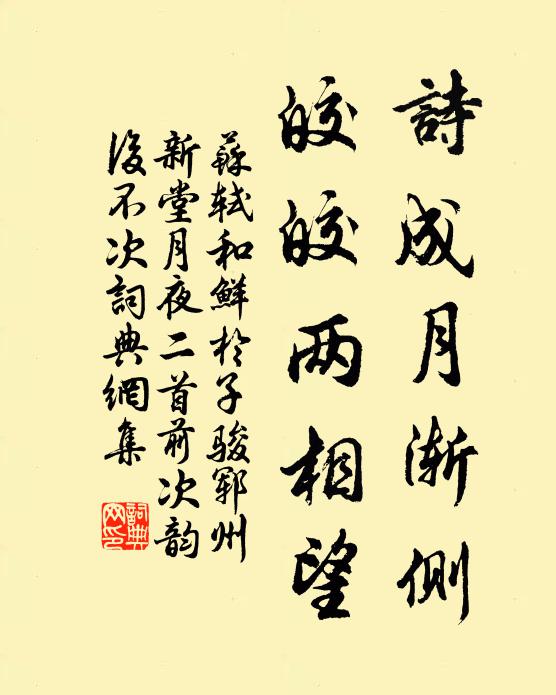 詩成月漸側
皎皎兩相望
蘇軾和鮮於子駿鄆州
新堂月夜二首前次韵
後不次詞典網集
詞典
网印